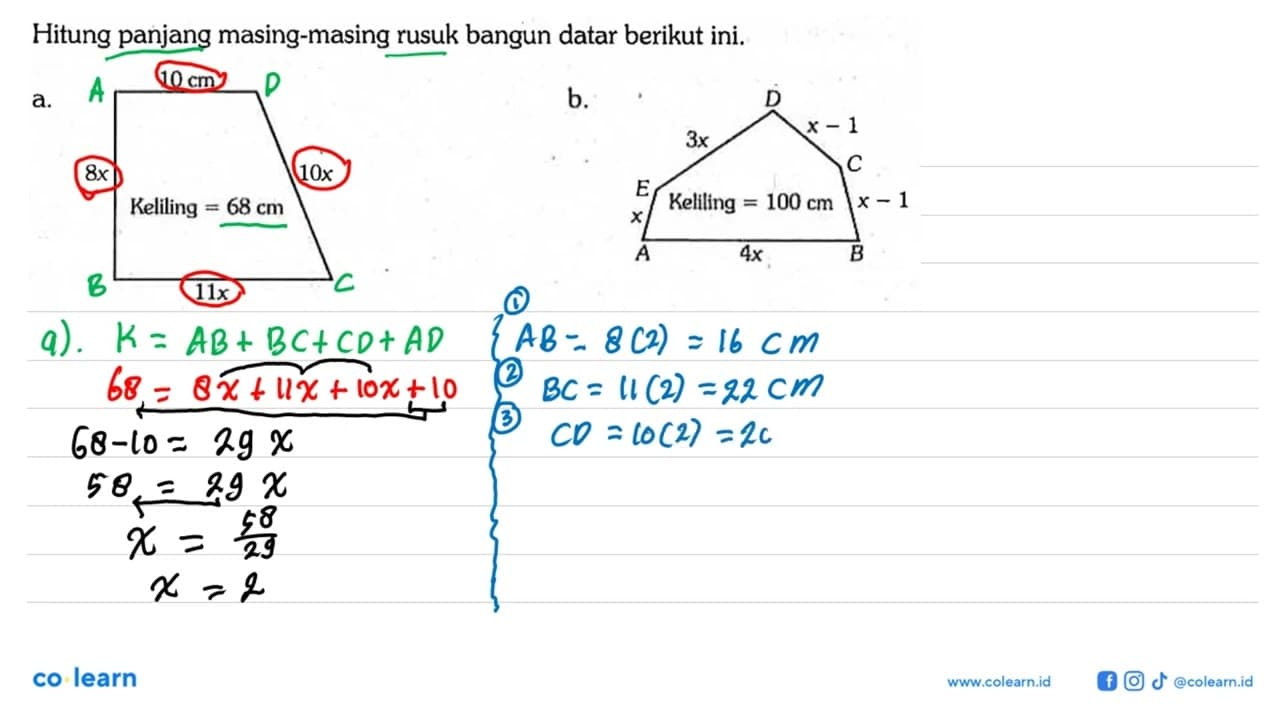 Hitung panjang masing-masing rusuk bangun datar berikut ini.
a.
A
10 cm
D
8x
10x
Keliling = 68 cm
B
11x
C
b.
D
3x
x – 1
C
E
Keliling = 100 cm
x – 1
x
A
4x
B
a). K = AB + BC + CD + AD
68 = 8x + 11x + 10x + 10
68 - 10 = 29 x
58 = 29 x
x = 58/29
x = 2
① AB = 8(2) = 16 cm
② BC = 11(2) = 22 cm
③ CD = 10(2) = 20
co·learn
www.colearn.id
@colearn.id